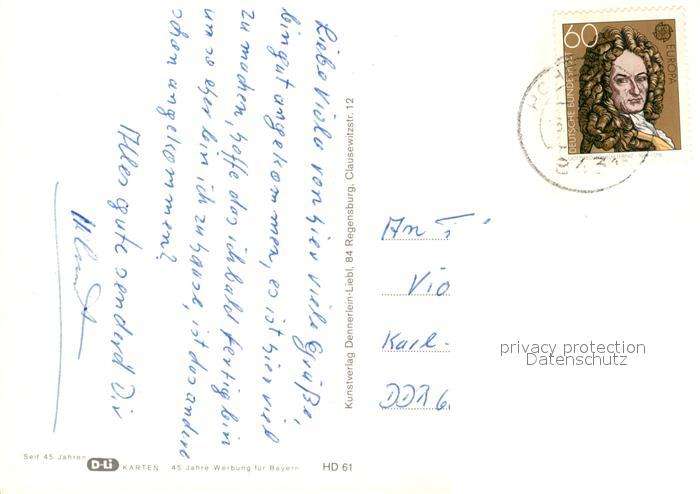 Liebe Viola von hier viele Grüße,
bin gut angekommen, es ist hier viel
zu machen, hoffe das ich bald fertig bin
um so eher bin ich zuhause, ist das andere
schon angekommen?
Alles gute sendend Dir
Kunstverlag Dennerlein-Liebl, 84 Regensburg, Clausewitzstr. 12
60
DEUTSCHE BUNDESPOST
EUROPA
An
Vio
Karl-
DDR 6
privacy protection
Datenschutz
Seit 45 Jahren
D-Li KARTEN 45 Jahre Werbung für Bayern HD 61